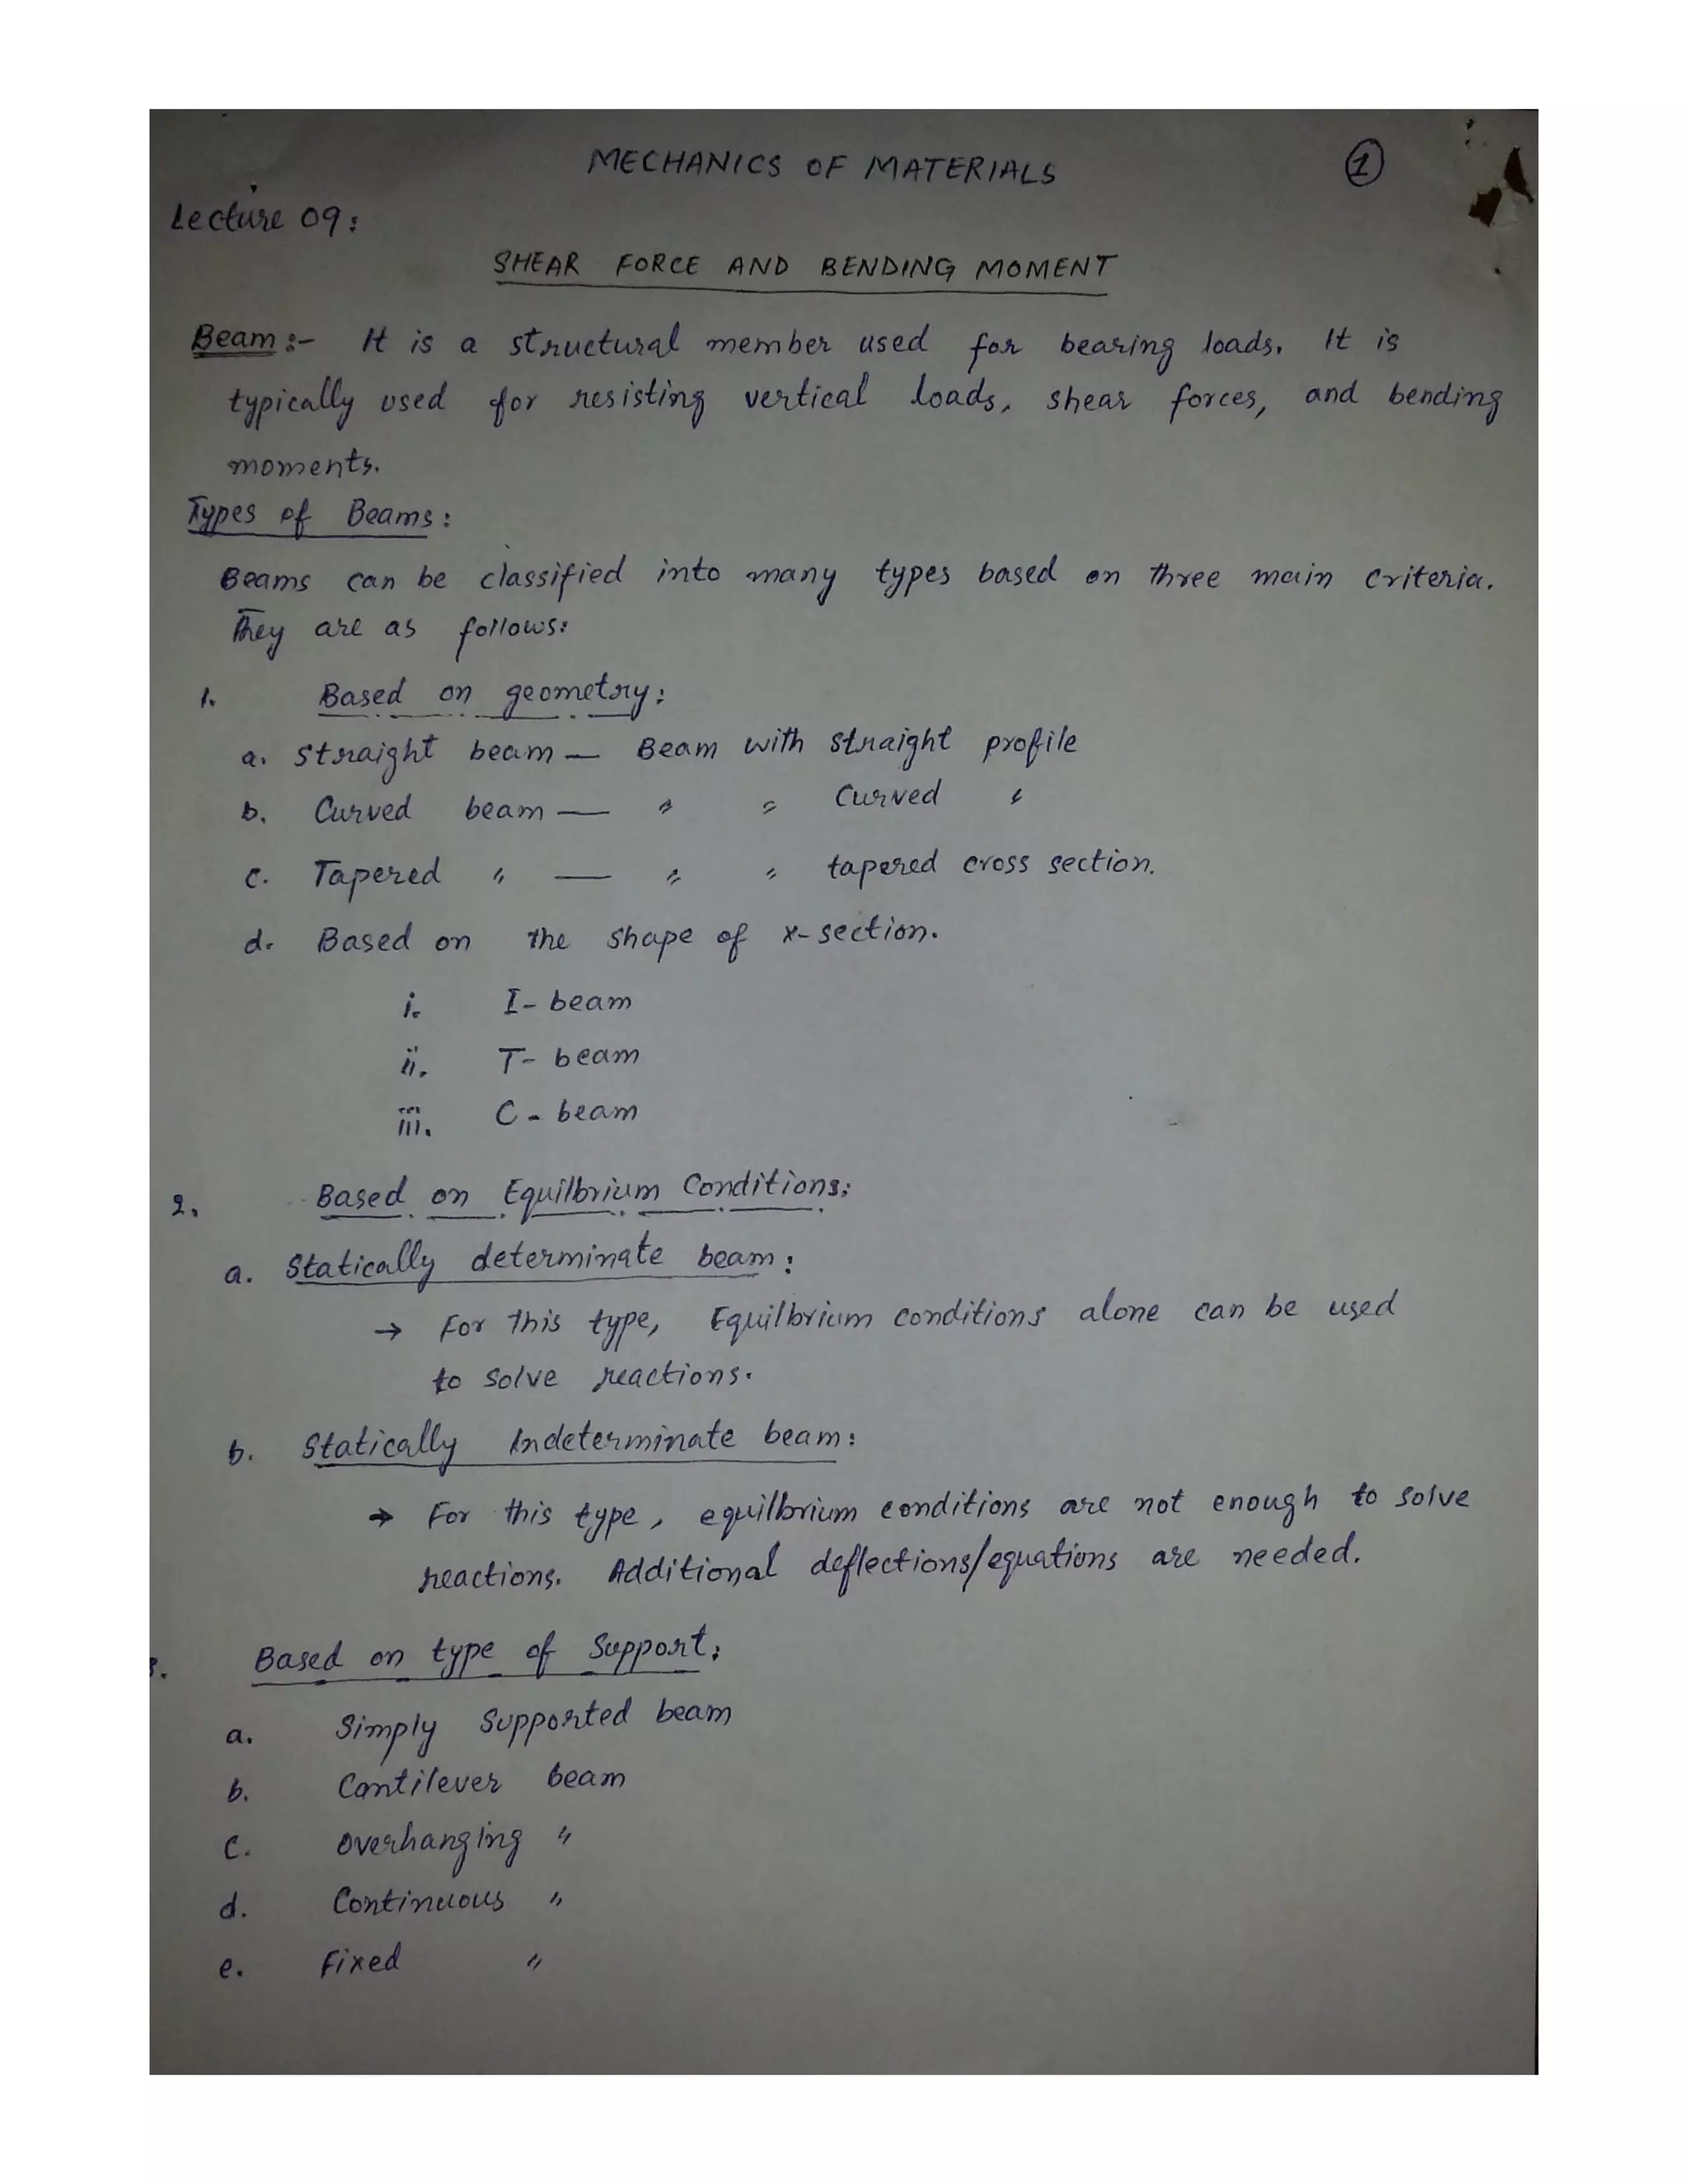 MECHANICS OF MATERIALS
1
Lecture 09:
SHEAR FORCE AND BENDING MOMENT
Beam:- It is a structural member used for bearing loads. It is
typically used for resisting vertical loads, shear forces, and bending
moments.
Types of Beams:
Beams can be classified into many types based on three main criteria.
They are as follows:
1. Based on geometry:
a. Straight beam — Beam with straight profile
b. Curved beam — " " Curved "
c. Tapered " — " " tapered cross section.
d. Based on the shape of x-section.
i. I-beam
ii. T-beam
iii. C-beam
2. Based on Equilbrium Conditions:
a. Statically determinate beam:
→ For this type, Equilbrium conditions alone can be used
to solve reactions.
b. Statically Indeterminate beam:
→ For this type, equilbrium conditions are not enough to solve
reactions. Additional deflections/equations are needed.
3. Based on type of Support:
a. Simply Supported beam
b. Cantilever beam
c. Overhanging "
d. Continuous "
e. Fixed "